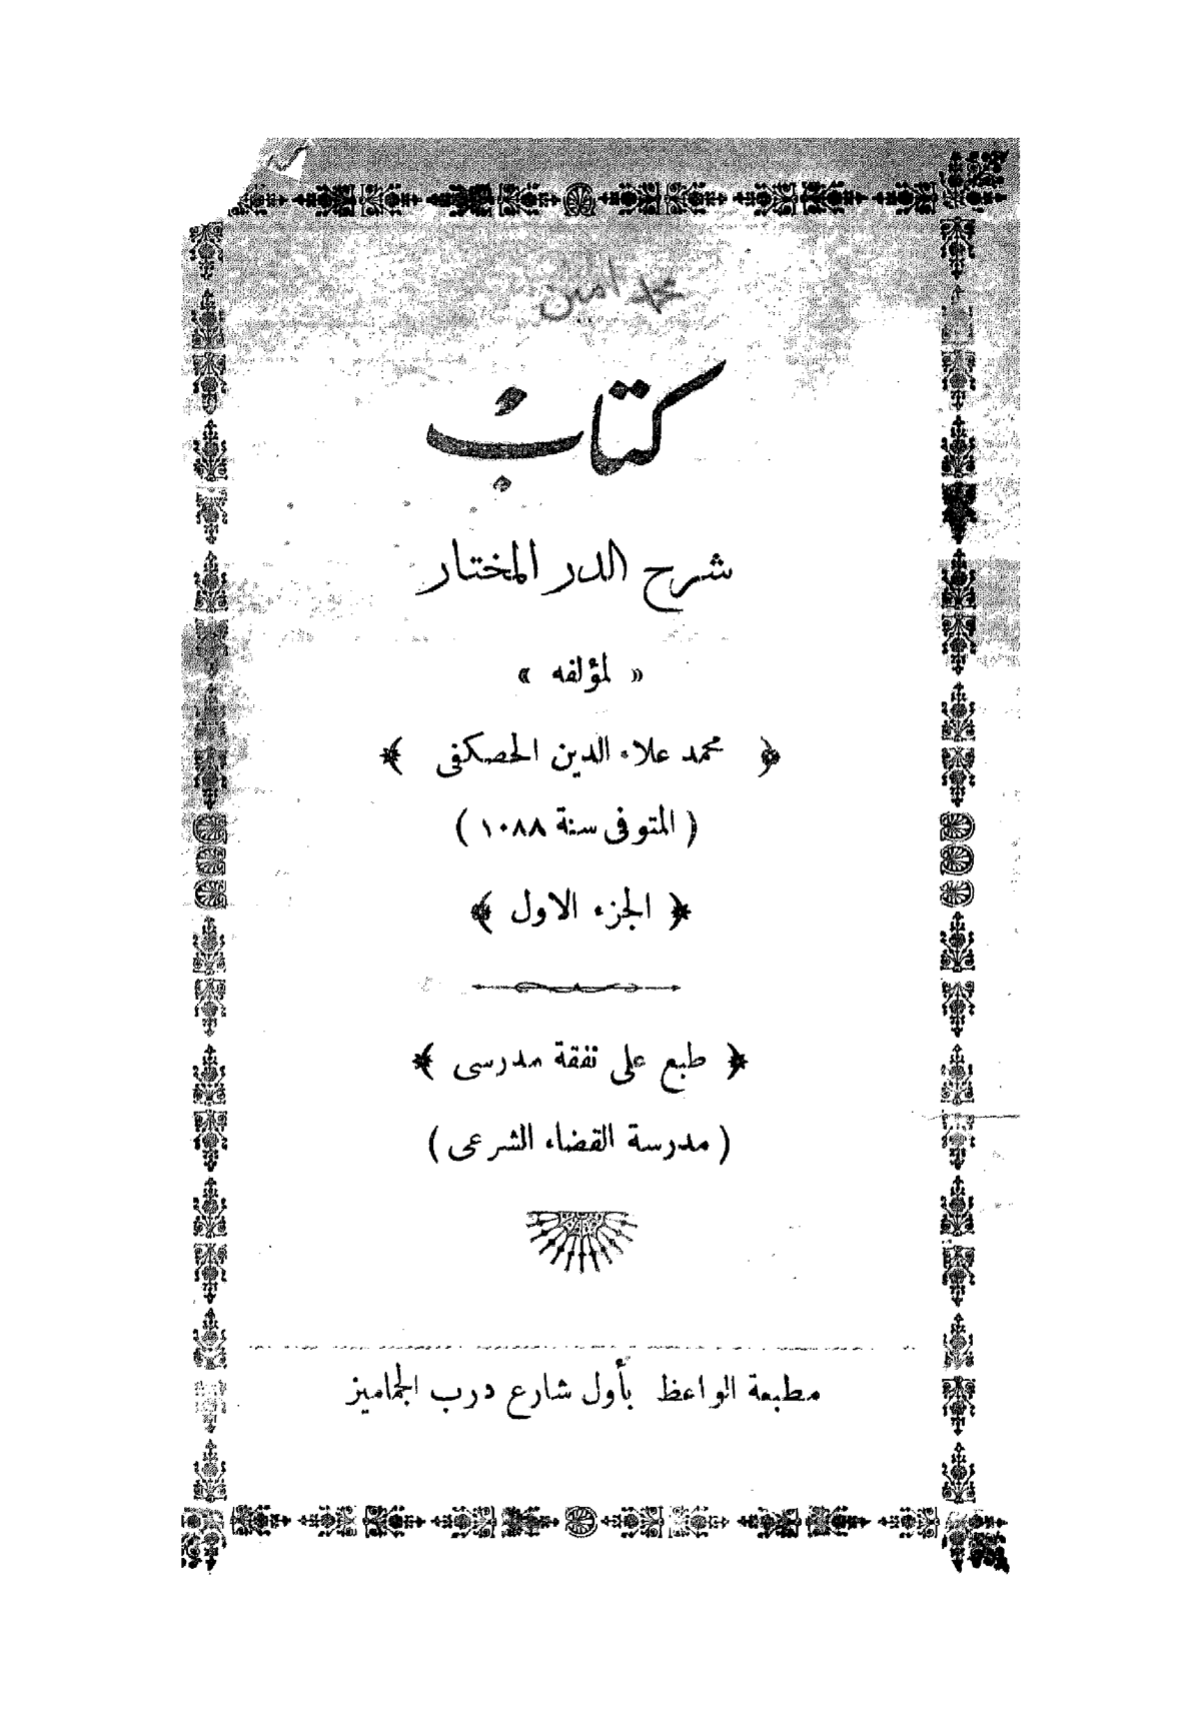 محمد امين
كتابٌ
شرح الدر المختار
« لمؤلفه »
﴿ محمد علاء الدين الحصكفى ﴾
( المتوفى سنة ١٠٨٨ )
﴿ الجزء الاول ﴾
﴿ طبع على نفقة مدرسى ﴾
( مدرسة القضاء الشرعى )
مطبعة الواعظ بأول شارع درب الجماميز